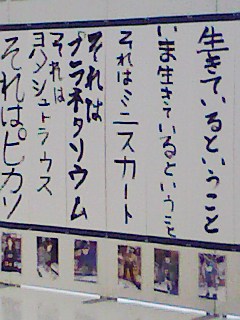 生きているということ
いま生きているということ
それはミニスカート
それは
プラネタリウム
それは
ヨハンシュトラウス
それはピカソ